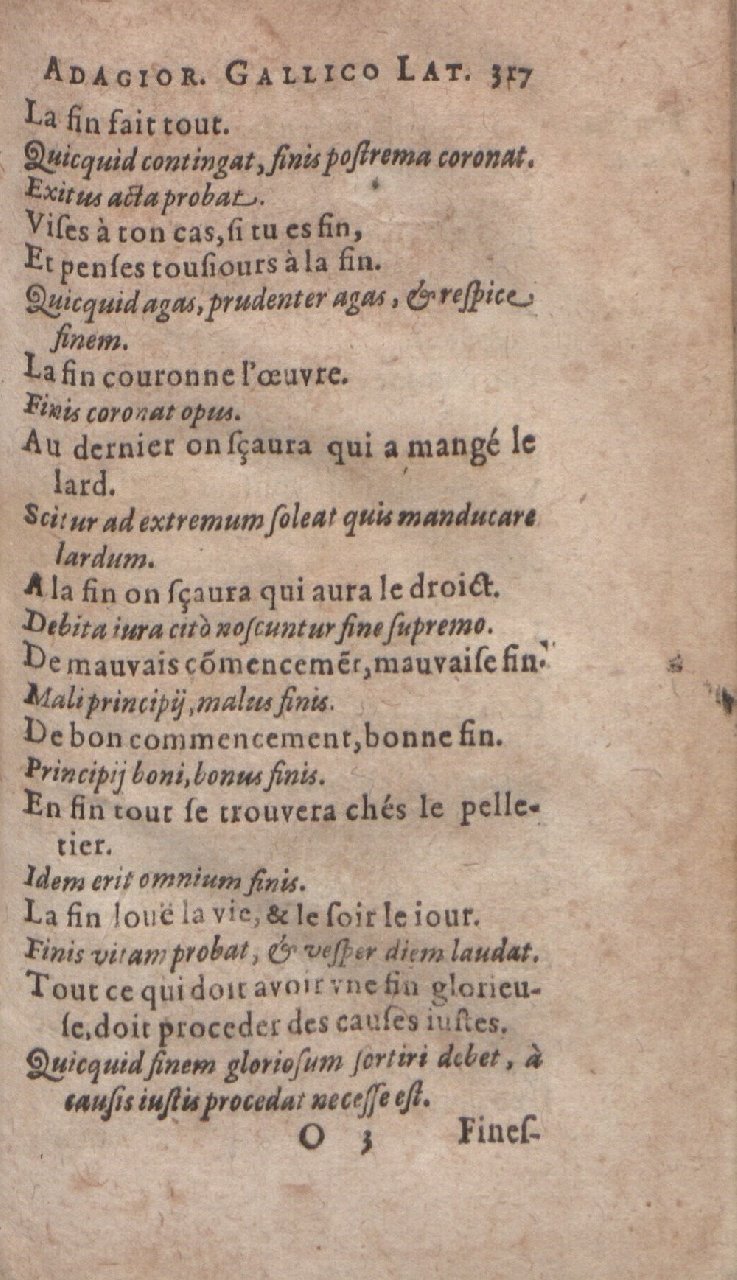 ADAGIOR. GALLICO LAT. 317
La fin fait tout.
Quicquid contingat, finis poſtrema coronat.
Exitus acta probat.
Viſes à ton cas, ſi tu es fin,
Et penſes touſiours à la fin.
Quicquid agas, prudenter agas, & reſpice
finem.
La fin couronne l'œuvre.
Finis coronat opus.
Au dernier on ſçaura qui a mangé le
lard.
Scitur ad extremum ſoleat quis manducare
lardum.
A la fin on ſçaura qui aura le droict.
Debita iura citò noſcuntur fine ſupremo.
De mauvais cõmencemẽt, mauvaiſe fin.
Mali principij, malus finis.
De bon commencement, bonne fin.
Principij boni, bonus finis.
En fin tout ſe trouvera chés le pelle-
tier.
Idem erit omnium finis.
La fin louë la vie, & le ſoir le iour.
Finis vitam probat, & veſper diem laudat.
Tout ce qui doit avoir vne fin glorieu-
ſe, doit proceder des cauſes iuſtes.
Quicquid finem glorioſum ſortiri debet, à
cauſis iuſtis procedat neceſſe eſt.
O 3 Fineſ-